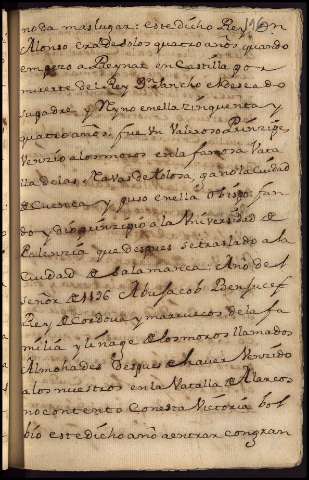 no da mas lugar: este dicho Rey Dn
Alonso era de solos quatro años quando
empezo a Reynar en Castilla por
muerte del Rey Dn Sancho el Deseado
su padre y Reyno en ella zinquenta y
quatro años: fue un Valeroso Prinzipe,
Venzio a los moros en la famosa Vata
lla de las Navas de tolosa, gano la ciudad
de Cuenca y puso en ella obispo: fun
do y dio prinzipio a la Universidad de
Palenzia que despues se traslado a la
Ciudad de Salamanca: Año del
señor de 1196 Abu Jacob Aben Jucef
Rey de Cordova y marruecos de la fa
milia y linage de los moros llamados
Almohades Despues de haver Venzido
a los nuestros en la Vatalla de Alarcos
no contento con esta Victoria bol
bio este dicho año a entrar con gran